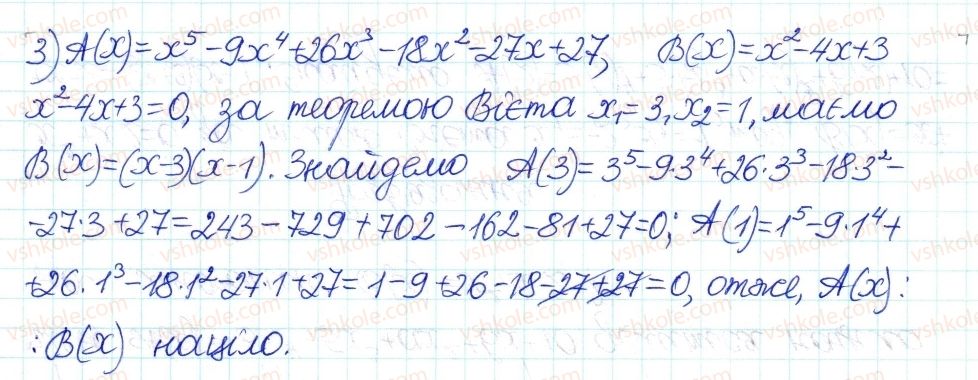 3) A(x)=x⁵-9x⁴+26x³-18x²-27x+27, B(x)=x²-4x+3
x²-4x+3=0, за теоремою Вієта x₁=3, x₂=1, маємо
B(x)=(x-3)(x-1). Знайдемо A(3)=3⁵-9·3⁴+26·3³-18·3²-
-27·3+27=243-729+702-162-81+27=0; A(1)=1⁵-9·1⁴+
+26·1³-18·1²-27·1+27=1-9+26-18-27+27=0, отже, A(x):
:B(x) націло.